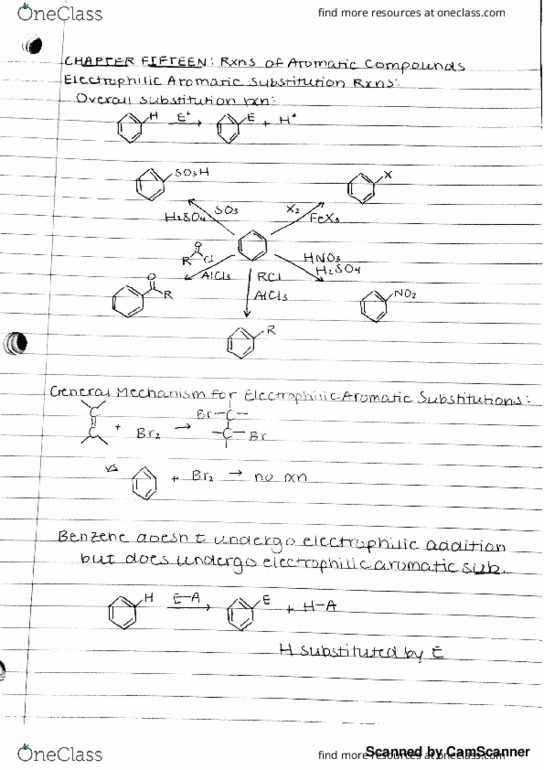 OneClass
find more resources at oneclass.com
CHAPTER FIFTEEN: Rxns of Aromatic Compounds
Electrophilic Aromatic Substitution Rxns:
Overall substitution rxn:
H E⁺ → E + H⁺
SO3H
X
H2SO4 SO3
X2 FeX3
O R Cl
AlCl3
RCl
AlCl3
HNO3
H2SO4
O R
NO2
R
General Mechanism for Electrophilic Aromatic Substitutions:
+ Br2 → Br-C-
-C-Br
vs
+ Br2 → no rxn
Benzene doesn't undergo electrophilic addition
but does undergo electrophilic aromatic sub.
H E-A → E + H-A
H substituted by E
OneClass
find more resources at oneclass.com
Scanned by CamScanner